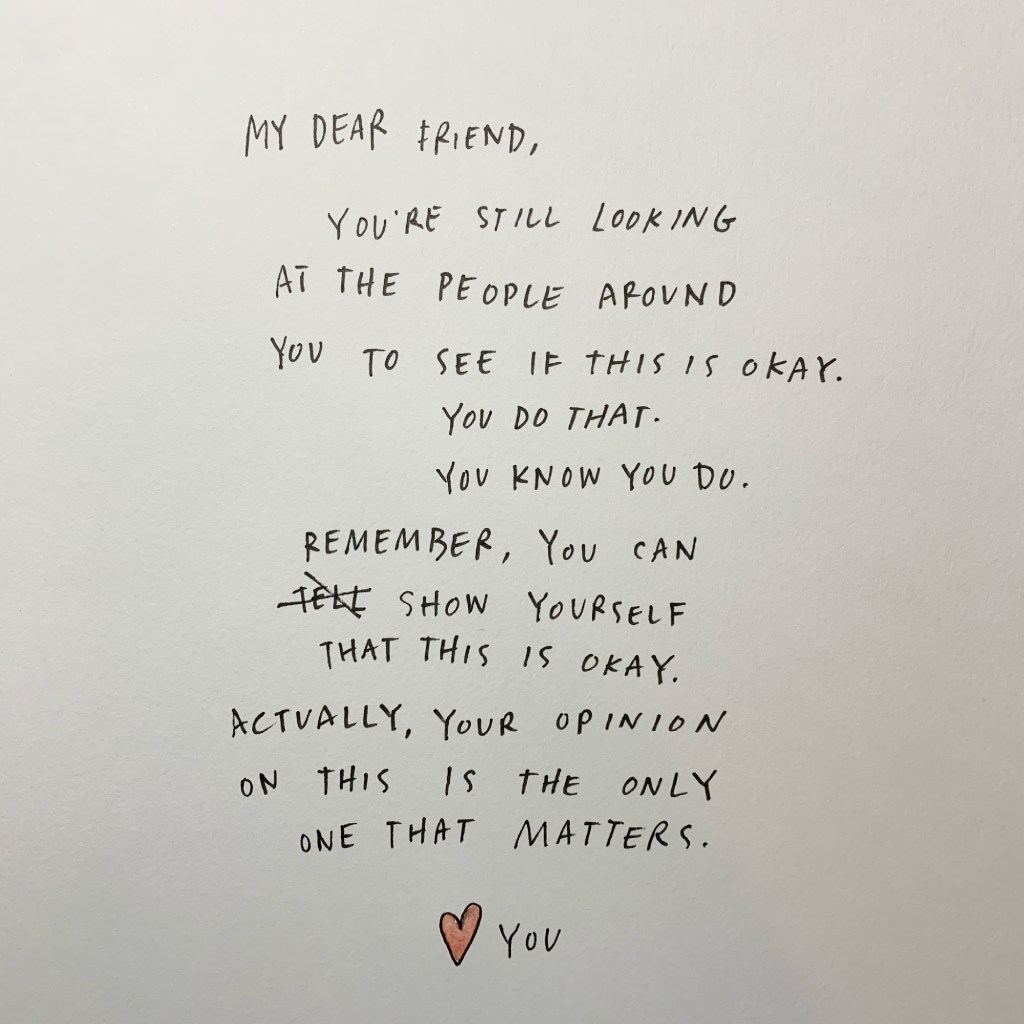 MY DEAR FRIEND,
YOU'RE STILL LOOKING
AT THE PEOPLE AROUND
YOU TO SEE IF THIS IS OKAY.
YOU DO THAT.
YOU KNOW YOU DO.
REMEMBER, YOU CAN
TELL SHOW YOURSELF
THAT THIS IS OKAY.
ACTUALLY, YOUR OPINION
ON THIS IS THE ONLY
ONE THAT MATTERS.
YOU